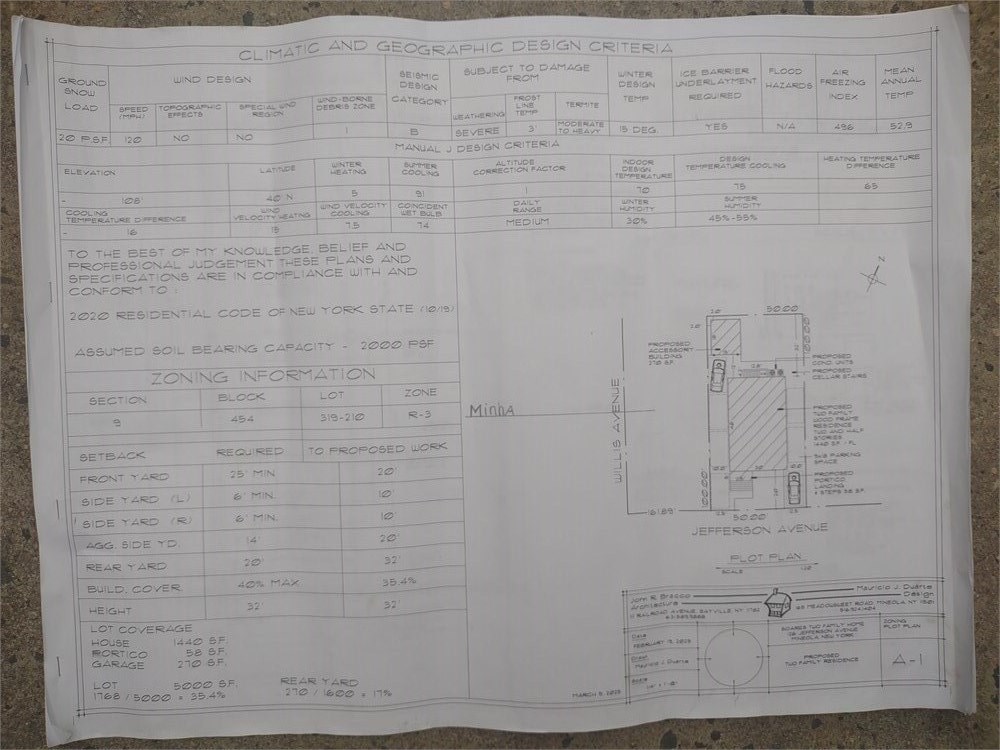 CLIMATIC AND GEOGRAPHIC DESIGN CRITERIA
GROUND SNOW LOAD
WIND DESIGN
SPEED (MPH)
TOPOGRAPHIC EFFECTS
SPECIAL WIND REGION
WIND-BORNE DEBRIS ZONE
SEISMIC DESIGN CATEGORY
SUBJECT TO DAMAGE FROM
WEATHERING
FROST LINE TEMP
TERMITE
WINTER DESIGN TEMP
ICE BARRIER UNDERLAYMENT REQUIRED
FLOOD HAZARDS
AIR FREEZING INDEX
MEAN ANNUAL TEMP
20 P.S.F. 120 NO NO 1 B SEVERE 3' MODERATE TO HEAVY 15 DEG. YES N/A 496 52.9
MANUAL J DESIGN CRITERIA
ELEVATION
LATITUDE
WINTER HEATING
SUMMER COOLING
ALTITUDE CORRECTION FACTOR
INDOOR DESIGN TEMPERATURE
DESIGN TEMPERATURE COOLING
HEATING TEMPERATURE DIFFERENCE
- 108' 40 N 5 91 1 70 75 65
COOLING TEMPERATURE DIFFERENCE
WIND VELOCITY HEATING
WIND VELOCITY COOLING
COINCIDENT WET BULB
DAILY RANGE
WINTER HUMIDITY
SUMMER HUMIDITY
- 16 15 7.5 74 MEDIUM 30% 45%-55%
TO THE BEST OF MY KNOWLEDGE, BELIEF AND
PROFESSIONAL JUDGEMENT THESE PLANS AND
SPECIFICATIONS ARE IN COMPLIANCE WITH AND
CONFORM TO :
2020 RESIDENTIAL CODE OF NEW YORK STATE (10/19)
ASSUMED SOIL BEARING CAPACITY - 2000 PSF
ZONING INFORMATION
SECTION BLOCK LOT ZONE
9 454 319-210 R-3
SETBACK REQUIRED TO PROPOSED WORK
FRONT YARD 25' MIN. 20'
SIDE YARD (L) 6' MIN. 10'
SIDE YARD (R) 6' MIN. 10'
AGG. SIDE YD. 14' 20'
REAR YARD 20' 32'
BUILD. COVER. 40% MAX 35.4%
HEIGHT 32 32'
LOT COVERAGE
HOUSE 1440 S.F.
PORTICO 58 S.F.
GARAGE 270 S.F.
LOT 5000 S.F.
1768 / 5000 = 35.4%
REAR YARD
270 / 1600 = 17%
MinhA
N
50.00
PROPOSED
ACCESSORY
BUILDING
270 S.F.
PROPOSED
COND. UNITS
PROPOSED
CELLAR STAIRS
PROPOSED
TWO FAMILY
WOOD FRAME
RESIDENCE
TWO AND HALF
STORIES
1440 S.F. - FL
9x18 PARKING
SPACE
PROPOSED
PORTICO
LANDING
4 STEPS 58 S.F.
WILLIS AVENUE
161.89'
50.00
JEFFERSON AVENUE
PLOT PLAN
SCALE
John R. Bracco
Architecture
Mauricio J. Duarte
Design
Date
FEBRUARY 13, 2023
Drawn
Mauricio J. Duarte
Scale
SOARES TWO FAMILY HOME
JEFFERSON AVENUE
MINEOLA NEW YORK
PROPOSED
TWO FAMILY RESIDENCE
ZONING
PLOT PLAN
A-1
MARCH 5, 2023